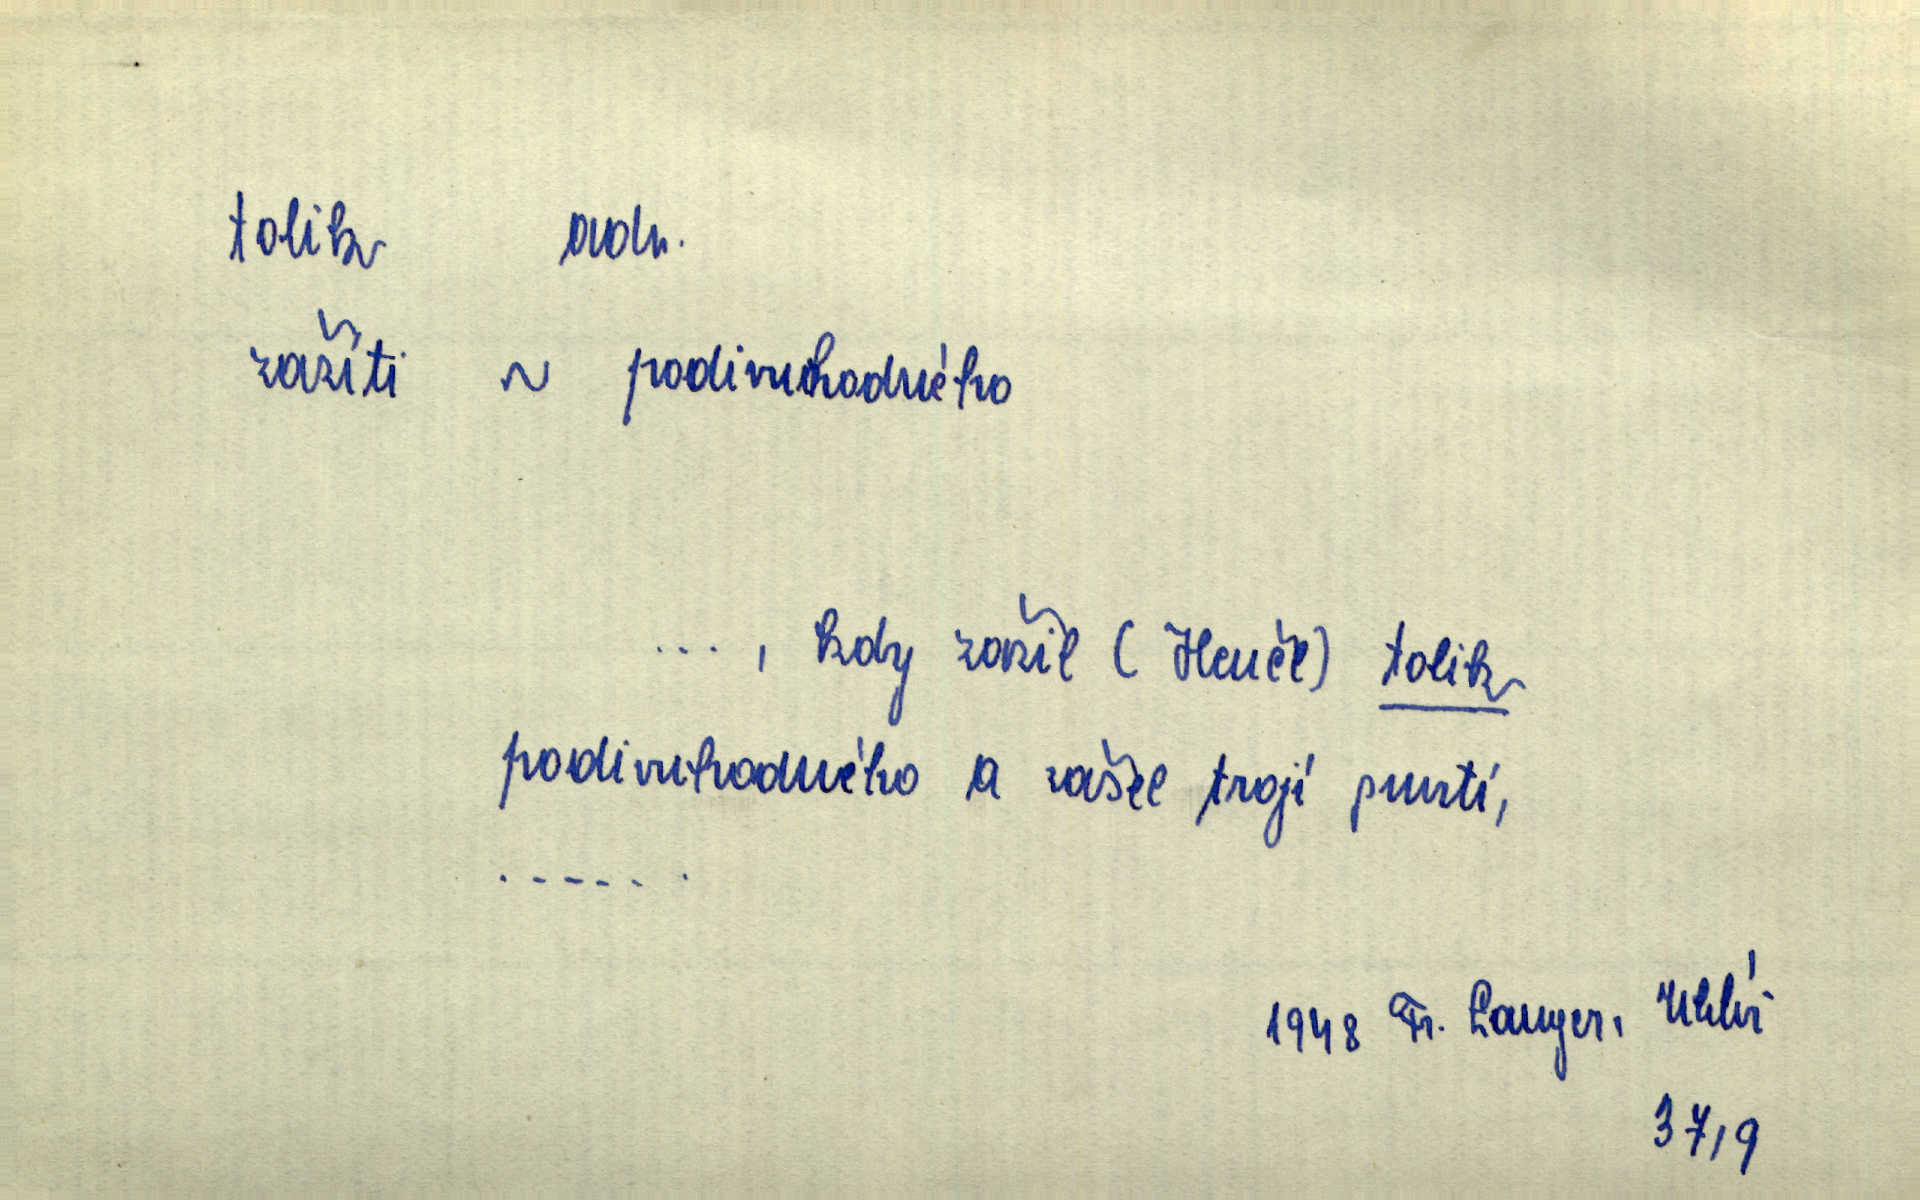 tolik adv.
zažíti ~ podivuhodného
... , kdy zažil ( Henčl) tolik
podivuhodného a zašel trojí smrtí,
. - - - - . .
1948 Fr. Langer,
37,9